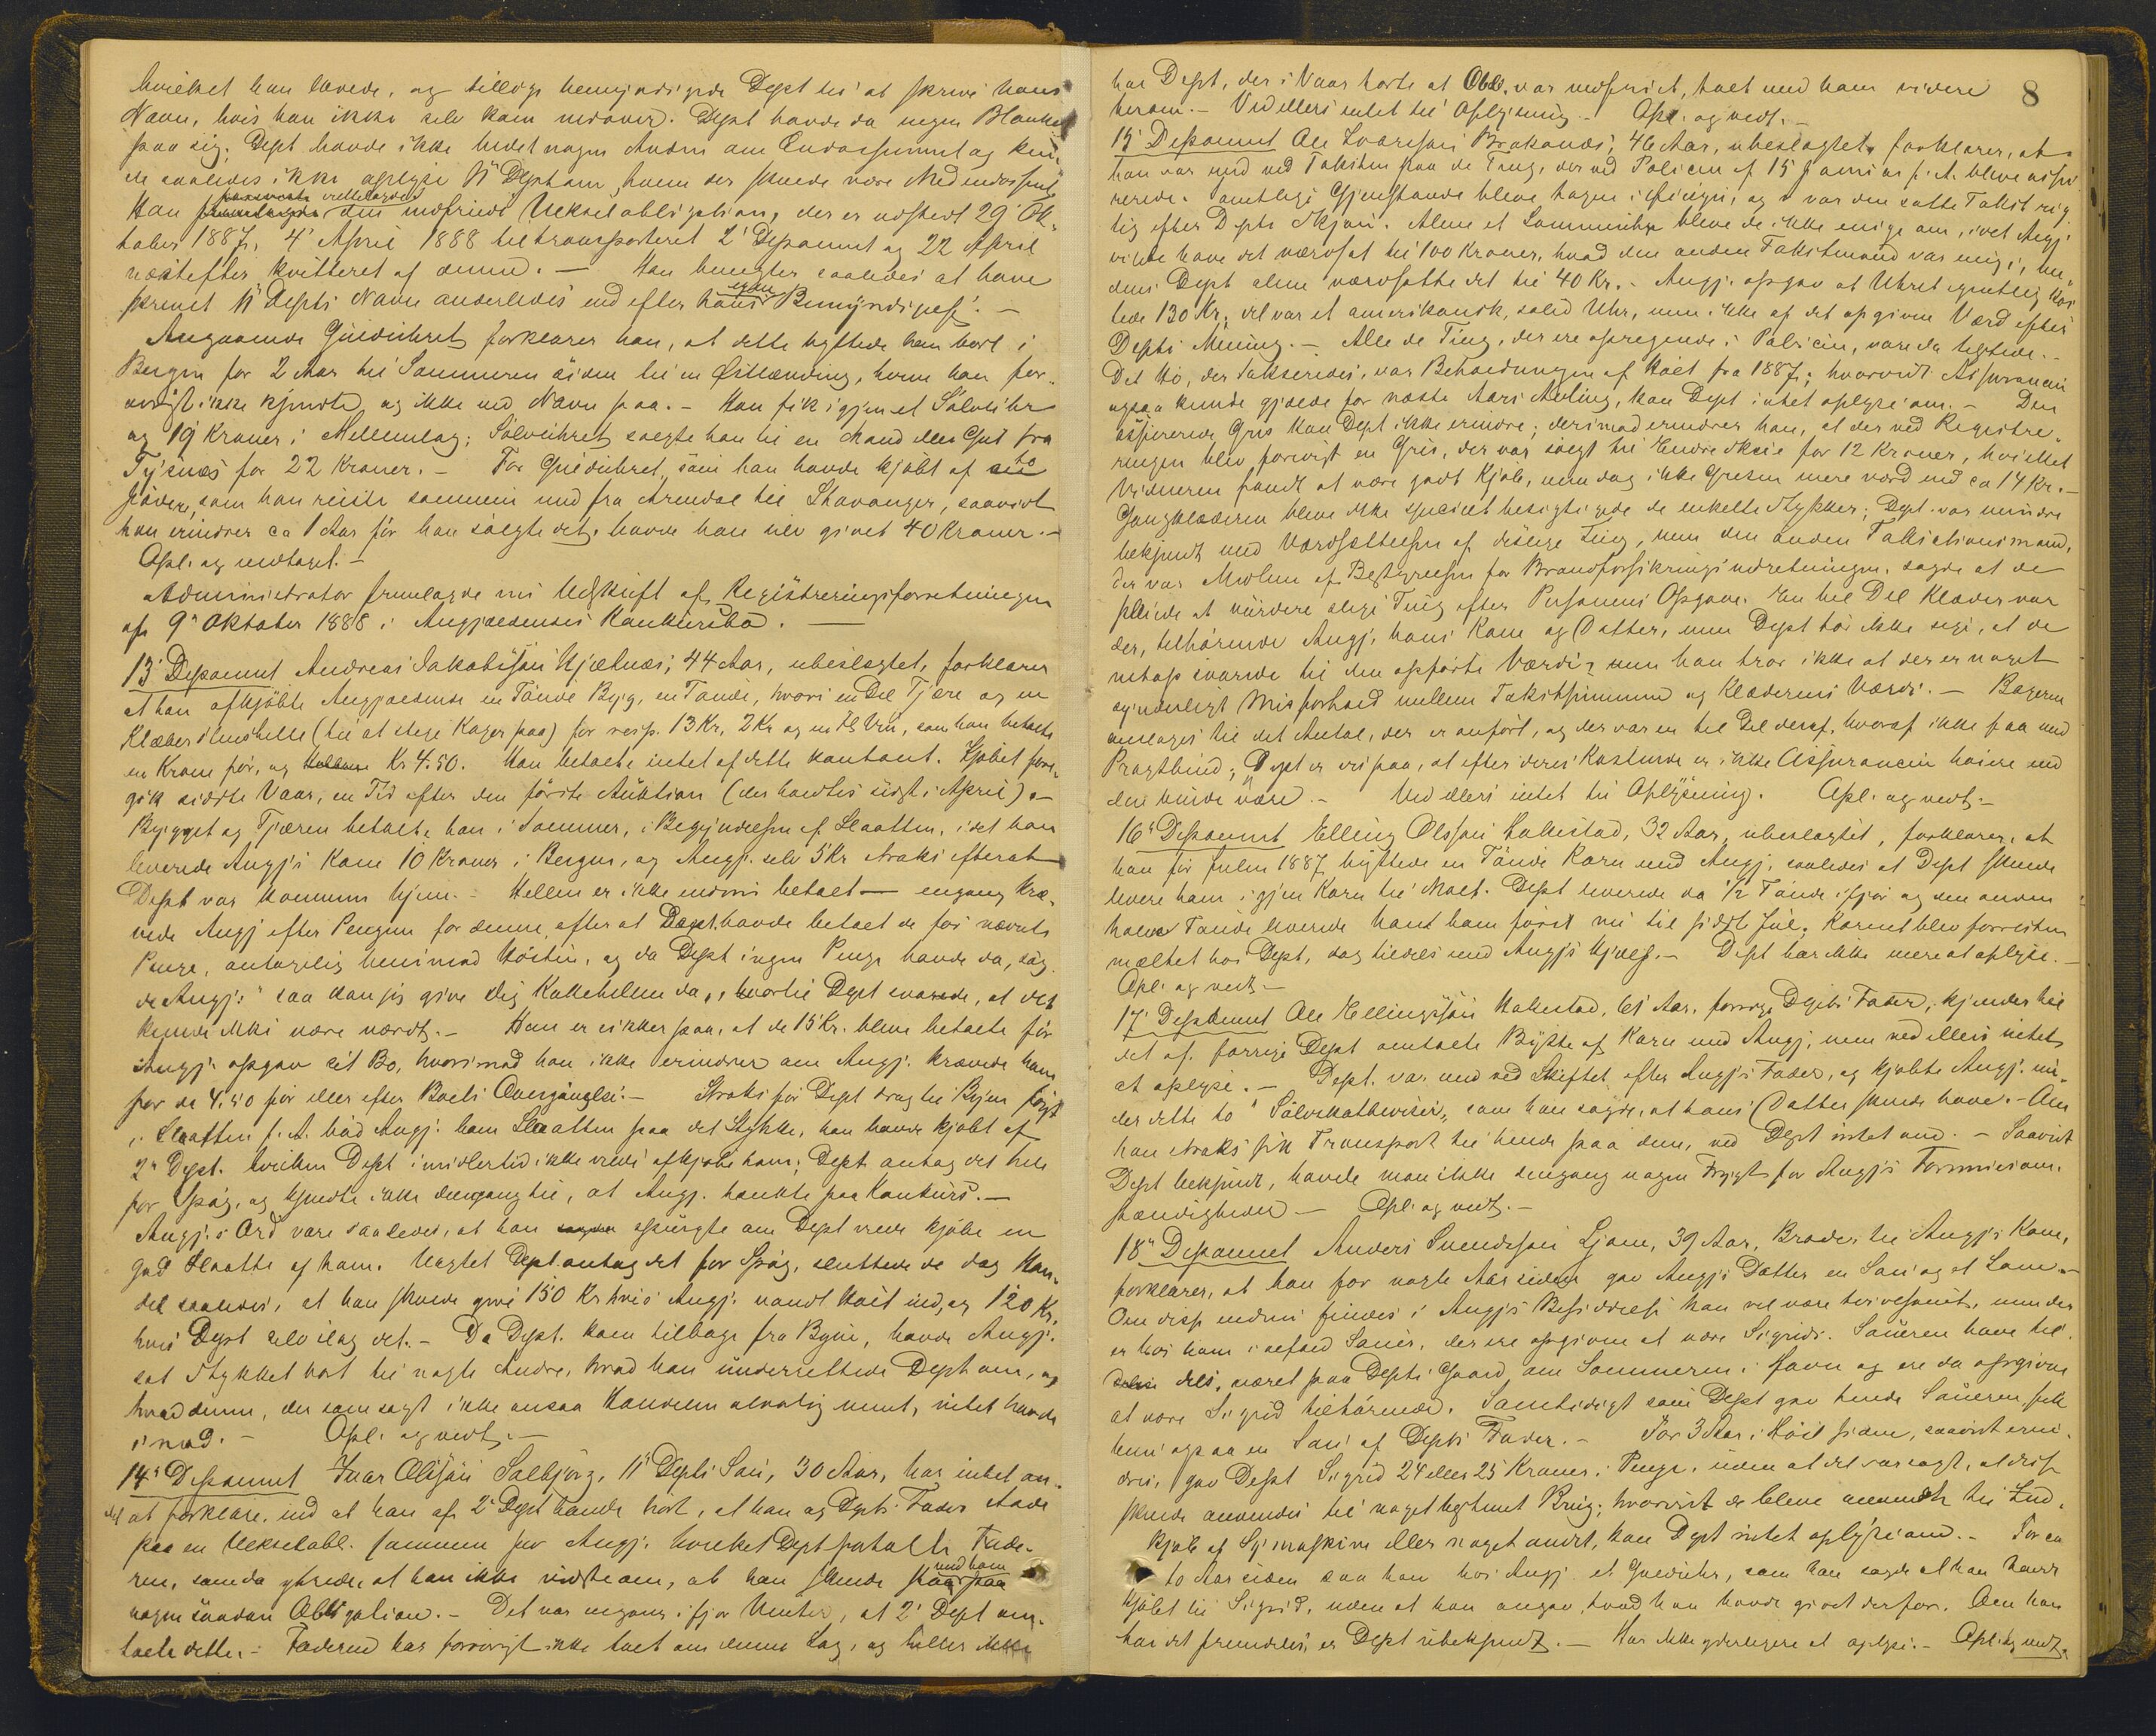 hvilket han lovede, og tillige bemyndigede Dept til at skrive hans
Navn, hvis han ikke selv kom nedover. Dept havde da ingen Blanket
paa sig. Dept havde ikke hedet nogen Anden om Endossement og kun-
de saaledes ikke oplyse 11' Dept om, hvem der skulde være Medendossent.
Han fremlagde den indfriede Vekselobligation, der er udstedt 29' Ok-
tober 1887, 4' April 1888 tiltransporteret 2' Deponent og 22 April
næstefter kvitteret af denne. — Han benegter saaledes at have
skrevet 11' Depts Navn anderledes end efter hans egen Bemyndigelse. —
Angaaende Gulduhret forklarer han, at dette byttede han bort i
Bergen for 2 Aar til Sommeren siden til en Østlænding, hvem han for-
øvrigt ikke kjendte og ikke ved Navn paa. — Han fik igjen et Sølvuhr
og 19 Kroner i Mellemlag; Sølvuhret solgte han til en Mand eller Gut fra
Tysnæs for 22 Kroner. — For Gulduhret, som han havde kjøbt af en to
Jøder, som han reiste sammen med fra Arendal til Stavanger, saavidt
han erindrer ca 1 Aar før han solgte det, havde han selv givet 40 Kroner. —
Opl. og vedtaget. —
Administrator fremlagde nu Udskrift af Registreringsforretningen
af 9' Oktober 1888 i Angjældendes Konkursbo. —
13' Deponent Andreas Jakobsson Kjætnæs, 44 Aar, ubeslægtet, forklarer
at han afkjøbte Angjældende en Tønde Byg, en Tønde, hvori en Del Tjære og en
Klæberstenshelle (til at stege Kager paa) for resp. 13 Kr, 2 Kr og en Fl Vin, som han betalte
en Krone for, og Hellen Kr 4.50. Han betalte intet af dette kontant. Kjøbet fore-
gik sidste Vaar, en Tid efter den første Auktion (der holdtes sidst i April). —
Bygget og Tjæren betalte han i Sommer, i Begyndelsen af Slaatten, idet han
leverede Angj's Kone 10 Kroner i Bergen, og Angj. selv 5 Kr straks efterat
Dept var kommen hjem. — Hellen er ikke endnu betalt — engang kræ-
vede Angj efter Pengene for denne, efter at Dept havde betalt de før nævnte
Penge, antagelig henimod Høsten, og da Dept ingen Penge havde da, sag-
de Angj: "saa kan jeg give dig Kakkehellen da", hvortil Dept svarede, at det
kunde ikke være værdt. — Han er sikker paa, at de 15 Kr. bleve betalte før
Angj. opgav sit Bo, hvorimod han ikke erindrer om Angj. krævede ham
for de 4.50 før eller efter Boets Overgivelse. — Straks før Dept drog til Byen først
i Slaatten f. A. bød Angj. ham Slaatten paa det Stykke, han havde kjøbt af
2' Dept. hvilken Dept imidlertid ikke vilde afkjøbe ham; Dept. antog det hele
for Spøg, og kjendte ikke dengang til, at Angj. tænkte paa Konkurs. —
Angj.'s Ord vare saaledes, at han spurgte om Dept vilde kjøbe en
god Slaatte af ham. Uagtet Dept antog det for Spøg, sluttede de dog Han-
del saaledes, at han skulde give 150 Kr hvis Angj. vandt Høet ind, og 120 Kr.
hvis Dept selv slog det. — Da Dept. kom tilbage fra Byen, havde Angj.
sat Stykket bort til nogle Andre, hvad han underrettede Dept om, og
hvad denne, der som sagt ikke ansaa Handelen alvorlig ment, intet havde
imod. — Opl. og vedt. —
14' Deponent Ivar Olsson Salbjørg, 11' Depts Søn, 30 Aar, har intet an-
det at forklare, end at han af 2' Dept havde hørt, at han og Depts Fader stode
paa en Vekselobl. sammen for Angj. hvilket Dept fortalte Fade-
ren, som da ytrede, at han ikke vidste om, at han skulde staa med ham paa
nogen saadan Obligation. — Det var engang i fjor Vinter, at 2' Dept om-
talte dette. — Faderen har forøvrigt ikke talt om denne Sag, og heller ikke
8
har Dept, der i Vaar hørte at Obl. var indfriet, talt med ham videre
herom. — Ved ellers intet til Oplysning. — Opl. og vedt. —
15' Deponent Ole Brakenæs, 46 Aar, ubeslægtet, forklarer, at
han var med ved Taksten paa de Ting, der ved Policen af 15 Januar f. A. bleve assu-
rerede. Samtlige Gjenstande bleve tagne i Øiesyn, og var den satte Takst rig-
tig efter Depts Skjøn. Alene et Lommeuhr bleve de ikke enige om, idet Angj.
vilde have det værdsat til 100 Kroner, hvad den anden Takstmand var enig i, me-
dens Dept alene værdsatte det til 40 Kr. — Angj. opgav at Uhret egentlig kos-
tede 130 Kr.; det var et amerikansk, solid Uhr, men ikke af det opgivne Værd efter
Depts Mening. — Alle de Ting, der ere opregnede i Policen, vare da tilstede. —
Det Hø, der takseredes, var Beholdningen af Høet fra 1887; hvorvidt Assurancen
ogsaa kunde gjælde for næste Aars Avling, kan Dept intet oplyse om. — Den
assurerede Gris kan Dept ikke erindre; derimod erindrer han, at der ved Registre-
ringen blev forevist en Gris, der var solgt til Endre for 12 Kroner, hvilket
Vidneren fandt at være godt Kjøb, men dog ikke Grisen mere værd end ca 14 Kr. —
Gangklæderne bleve ikke specielt besigtigede de enkelte Stykker; Dept. var mindre
bekjendt med Værdsættelsen af deslige Ting, men den anden Takstmand,
der var Medlem af Bestyrelsen for Brandforsikringsindretningen, sagde at de
pleiede at vurdere slige Ting efter Personens Opgave. En hel Del Klæder var
der, tilhørende Angj., hans Kone og Datter, men Dept tør ikke sige, at de
netop svarede til den opførte Værdi, men han tror ikke at der er noget
synderligt Misforhold mellem Takstsummen og Klædernes Værdi. — Bøgerne
ansloges til det Antal, der er anført, og der var en hel Del deraf, hvoraf ikke faa med
Pragtbind; Dept er vis paa, at efter deres Kostende er ikke Assurancen høiere end
den burde være. — Ved ellers intet til Oplysning. Opl. og vedt. —
16' Deponent Elling Olsson Hakestad, 32 Aar, ubeslægtet, forklarer, at
han før Julen 1887 byttede en Tønde Korn med Angj., saaledes at Dept skulde
levere ham igjen Korn til Malt. Dept leverede da 1/2 Tønde ifjor og den anden
halve Tønde leverede han ham først nu til sidste Jul. Kornet blev forresten
mæltet hos Dept, dog tildels med Angj's Hjælp. — Dept har ikke mere at oplyse. —
Opl. og vedt. —
17' Deponent Ole Hellingsson Hakestad, 61 Aar, forrige Depts Fader, kjender til
det af forrige Dept omtalte Bytte af Korn med Angj., men ved ellers intet
at oplyse. — Dept. var med ved Skiftet efter Angj's Fader, og kjøbte Angj. un-
der dette to som han sagde, at hans Datter skulde have. — Om
han straks fik Transport til hende paa dem, ved Dept intet om. — Saavidt
Dept bekjendt, havde man ikke dengang nogen Frygt for Angj's Formuesom-
stændigheder — Opl. og vedt. —
18' Deponent Anders Svendsson Ljone, 39 Aar, Broder til Angj's Kone,
forklarer, at han for nogle Aar siden gav Angj's Datter en Sau og et Lam. —
Om disse endnu findes i Angj's Besiddelse kan vel være tvivlsomt, men der
er hos ham i alfald Sauer, der ere opgivne at være Sigrids. Sauerne have til-
dels, været paa Depts Gaard, om Sommeren i Havn og ere da opgivne
at være Sigrid tilhørende. Samtidigt som Dept gav hende Sauerne, fik
hun ogsaa en Sau af Depts Fader. — For 3 Aar i Høst siden, saavidt erin-
dres, gav Dept Sigrid 24 eller 25 Kroner i Penge, uden at det var sagt, at disse
skulde anvendes til noget bestemt Brug; hvorvidt de bleve anvendte til Ind-
kjøb af Symaskine eller noget andet, kan Dept intet oplyse om. — For en
to Aar siden saa han hos Angj. et Gulduhr, som han sagde at han havde
kjøbt til Sigrid, uden at han angav, hvad han havde givet derfor. Om han
har det fremdeles, er Dept ubekjendt. — Har ikke yderligere at oplyse. — Opl. og vedt.